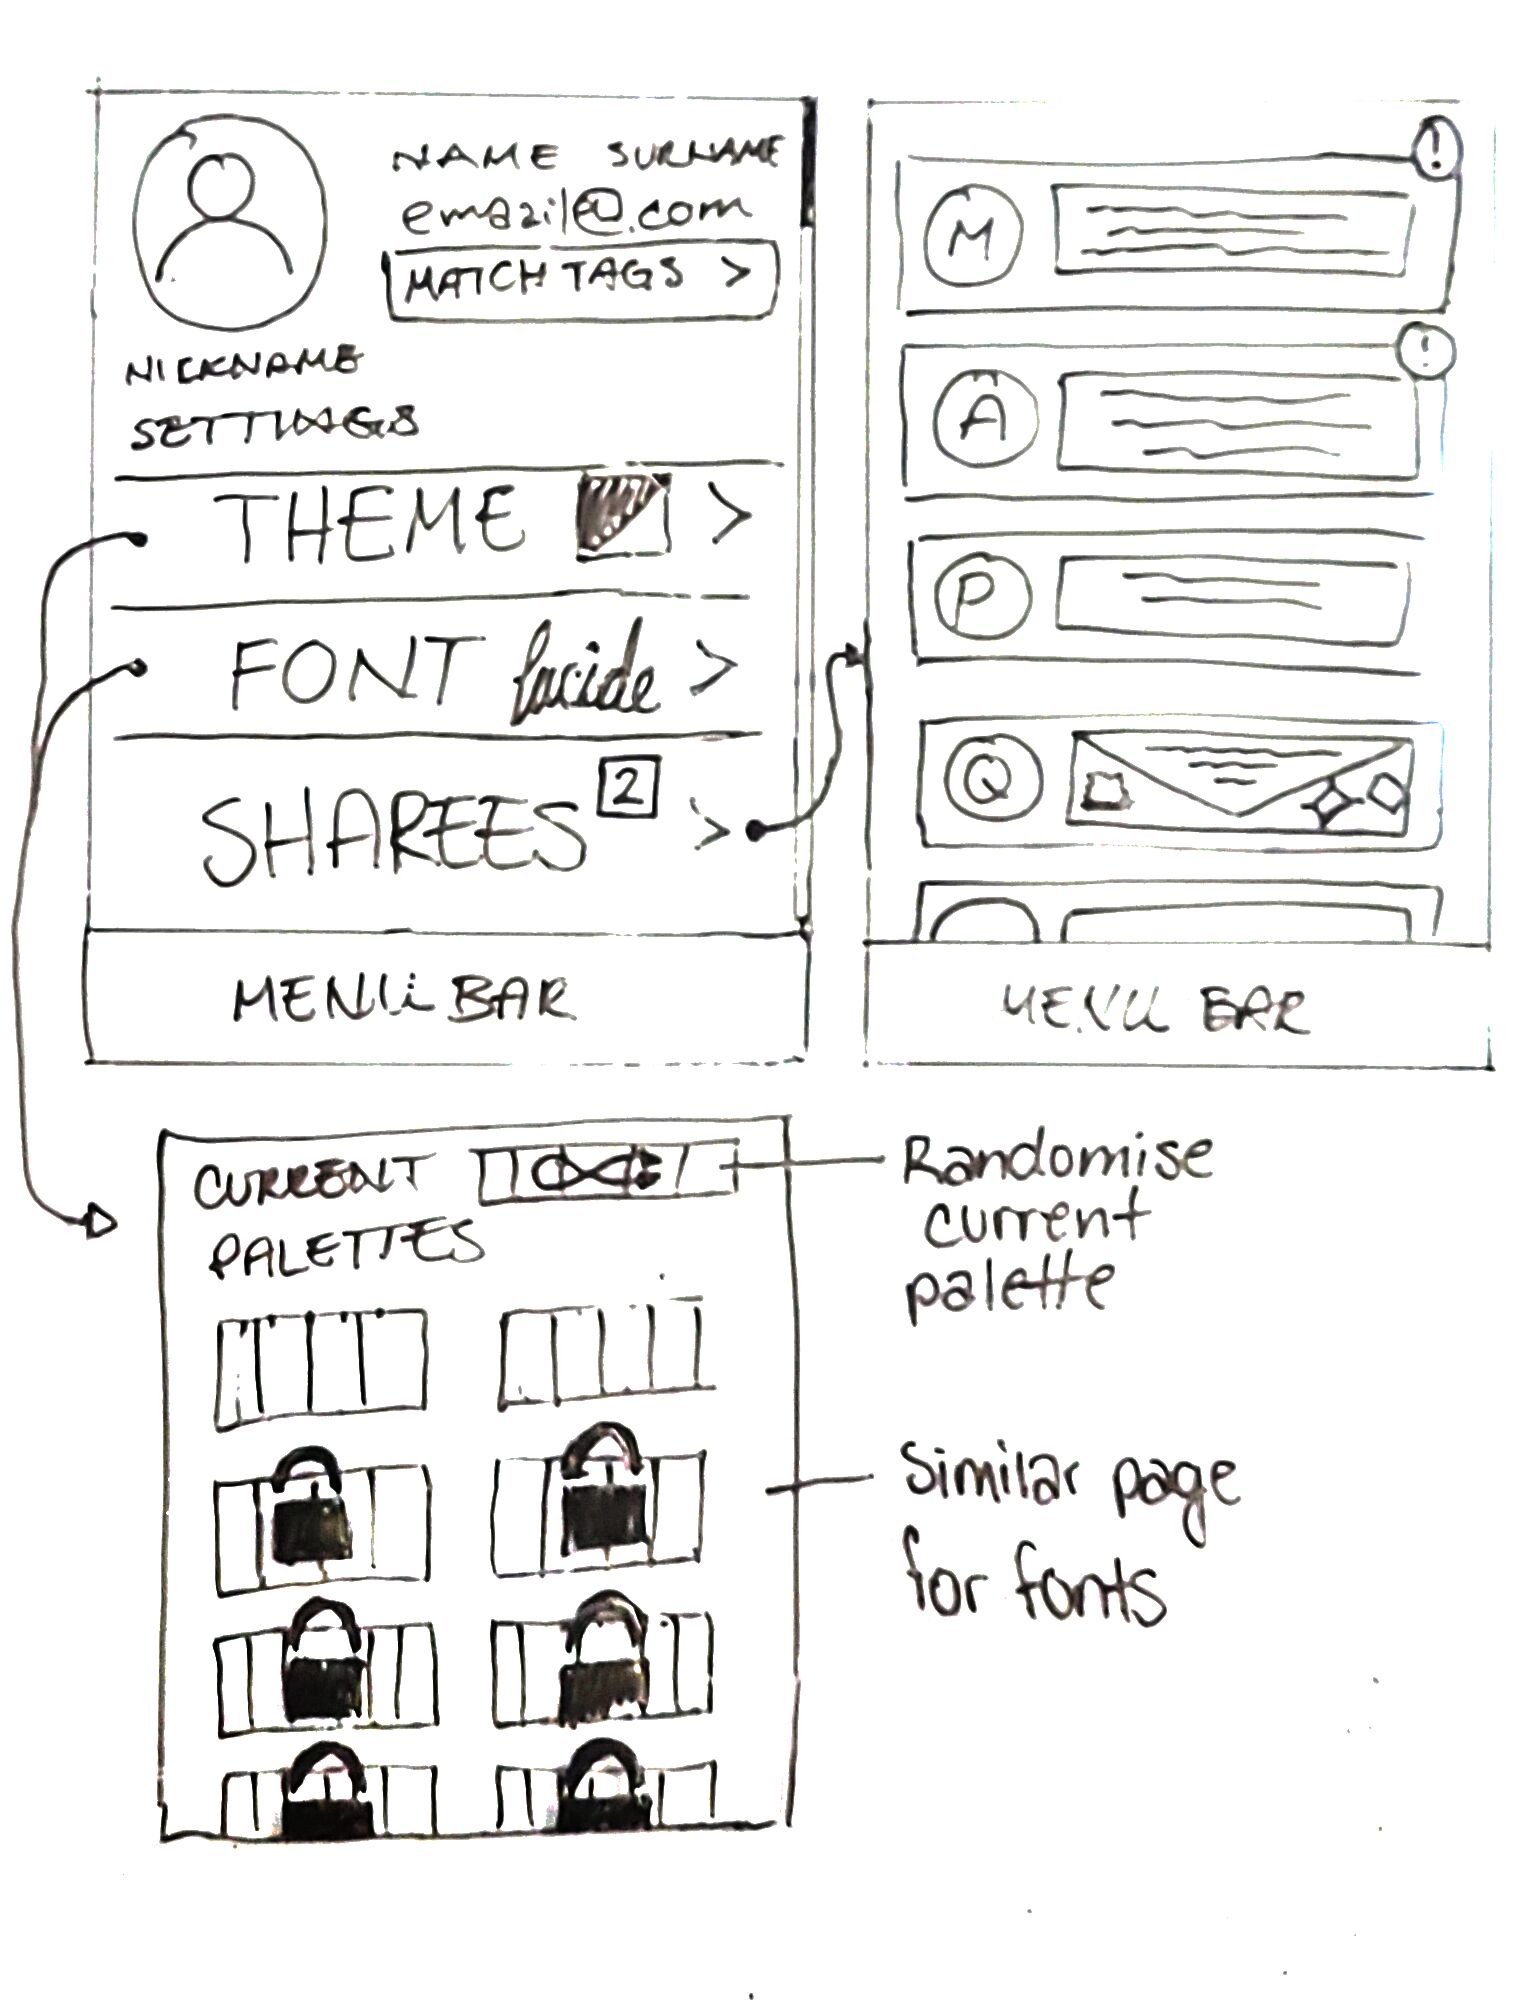 NAME SURNAME
emazil@.com
MATCH TAGS >
NICKNAME
SETTINGS
THEME >
FONT lucide >
SHAREES 2 >
MENU BAR
!
M
!
A
P
Q
MENU BAR
CURRENT
PALETTES
Randomise
current
palette
Similar page
for fonts